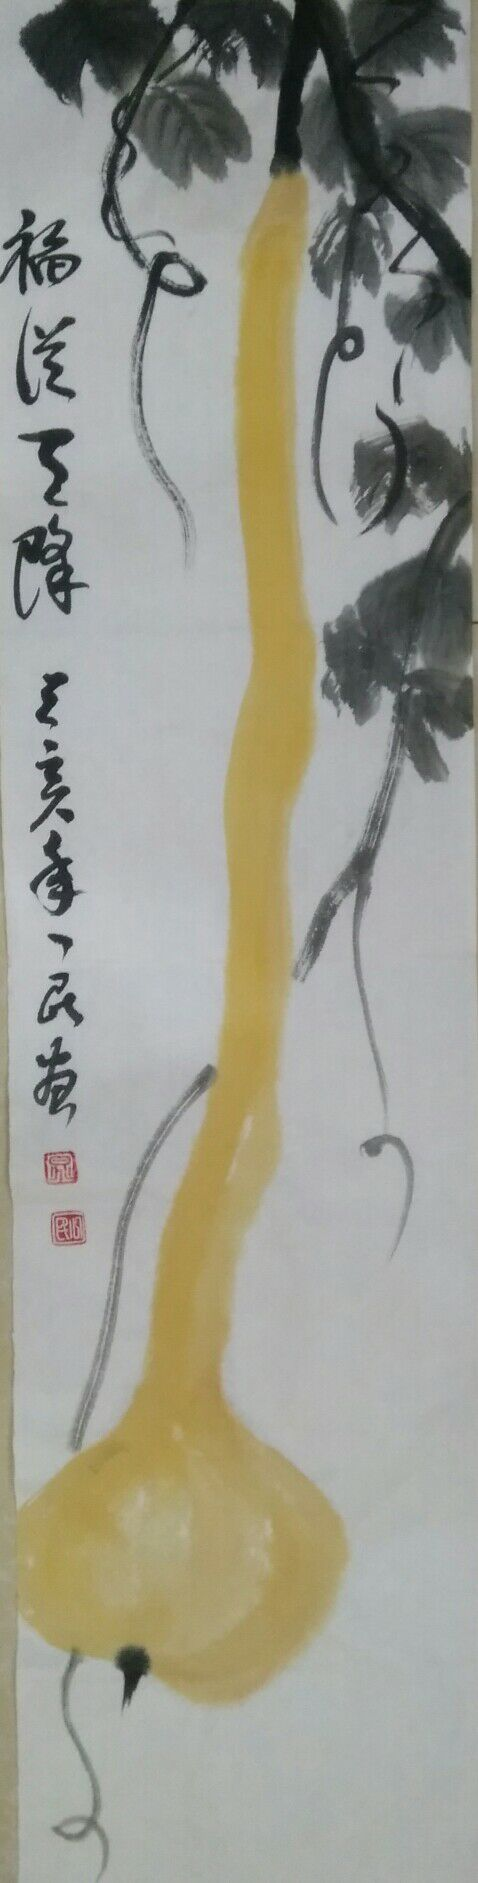 福从天降
己亥年一民画